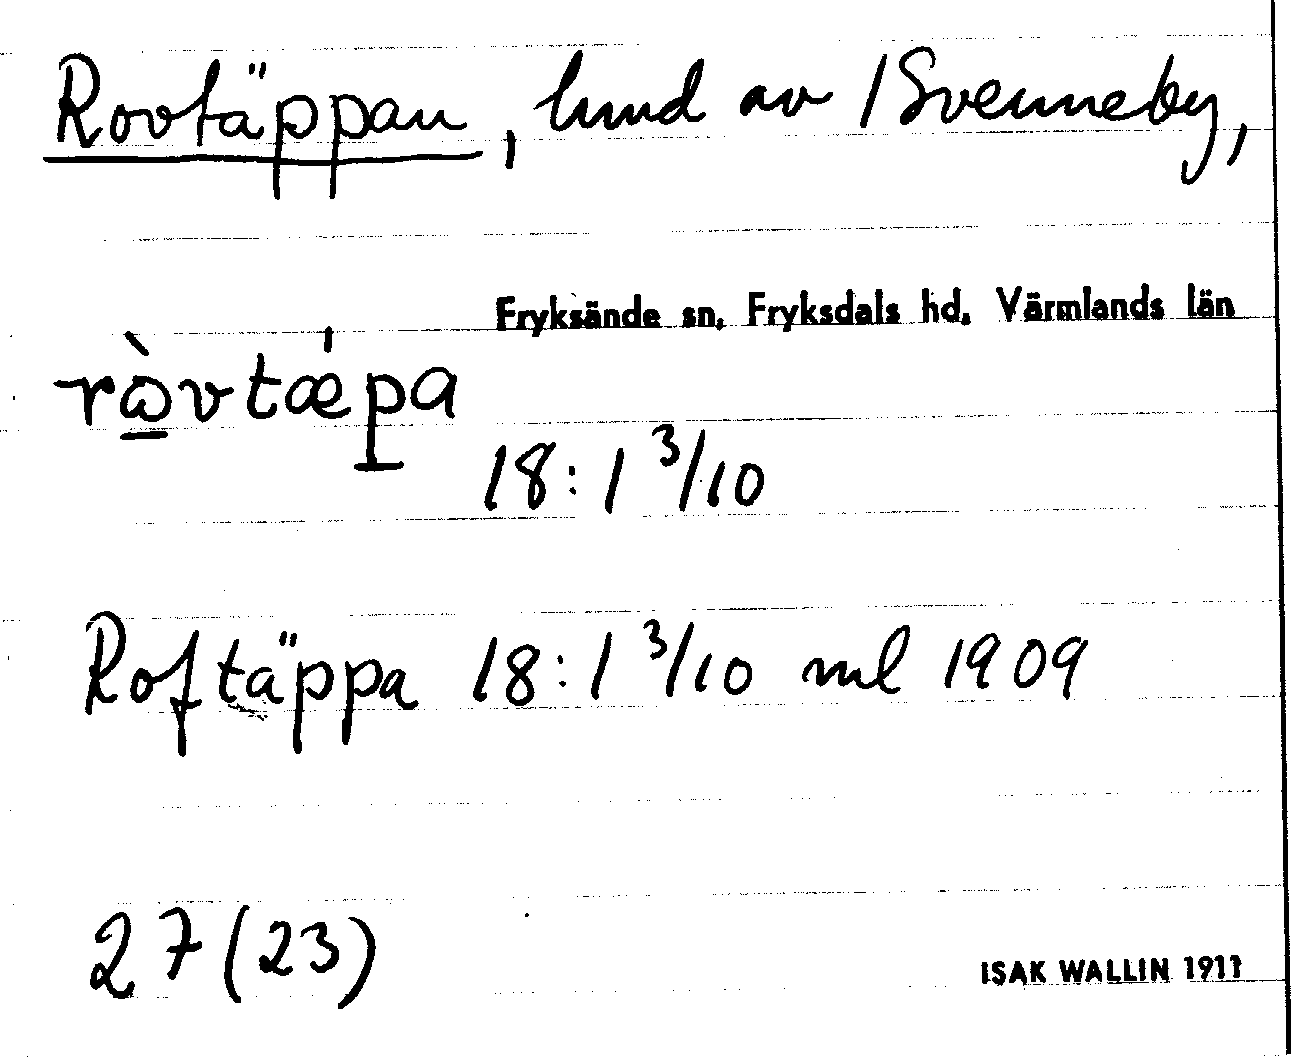 Rovtäppan, hmd av 1 Svenneby,
Fryksände sn, Fryksdals hd, Värmlands län
rὼvtǽpa
18:1 3/10
Roftäppa 18:1 3/10 ml 1909
27(23)
ISAK WALLIN 1911